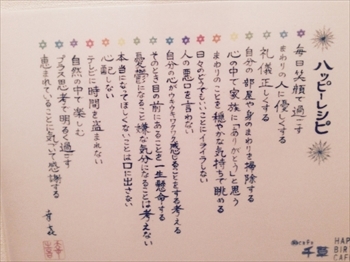 ハッピーレシピ
毎日笑顔で過ごす
まわりの人に優しくする
礼儀正しくする
自分の部屋や身のまわりを掃除する
心の中で家族に「ありがとう」と思う
まわりのことを穏やかな気持ちで眺める
日々のどうでもいいことにイライラしない
人の悪口を言わない
自分の心がウキウキワクワク感じることをする考える
そのとき目の前にあることを一生懸命する
憂鬱になること嫌な気分になることは考えない
本当になってほしくないことは口に出さない
心配しない
テレビに時間を盗まれない
自然の中で楽しむ
プラス思考で明るく過ごす
恵まれていることに気づいて感謝する
cafe
千草
HAP
BIR
CAFE